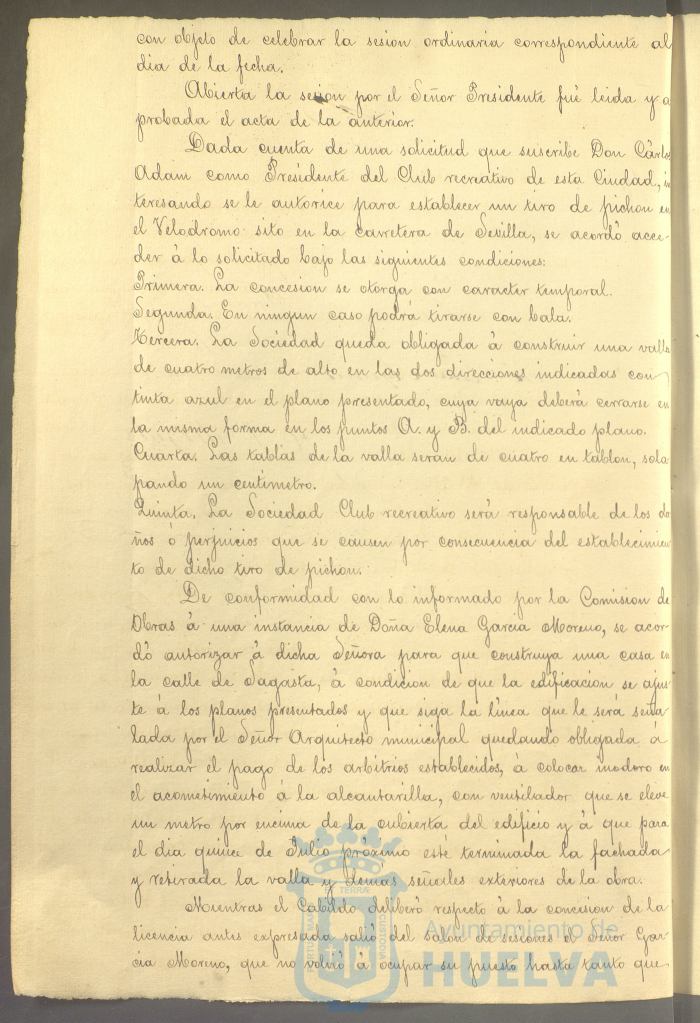 con objeto de celebrar la sesion ordinaria correspondiente al
dia de la fecha.
Abierta la sesion por el Señor Presidente fué leida y a
probada el acta de la anterior.
Dada cuenta de una solicitud que suscribe Don Cárlos
Adam como Presidente del Club recreativo de esta Ciudad, in
teresando se le autorice para establecer un tiro de pichon en
el Velodromo sito en la carretera de Sevilla, se acordó acce-
der á lo solicitado bajo las siguientes condiciones:
Primera. La concesion se otorga con caracter temporal.
Segunda. En ningun caso podrá tirarse con bala.
Tercera. La Sociedad queda obligada á construir una valla
de cuatro metros de alto en las dos direcciones indicadas con
tinta azul en el plano presentado, cuya vaya deberá cerrarse en
la misma forma en los puntos A. y B. del indicado plano.
Cuarta. Las tablas de la valla seran de cuatro en tablon, sola
pando un centímetro.
Quinta. La Sociedad Club recreativo será responsable de los da
ños ó perjuicios que se causen por consecuencia del establecimien
to de dicho tiro de pichon.
De conformidad con lo informado por la Comision de
Obras á una instancia de Doña Elena Garcia Moreno, se acor
dó autorizar á dicha Señora para que construya una casa en
la calle de Sagasta, á condicion de que la edificacion se ajus
te á los planos presentados y que siga la línea que le será seña
lada por el Señor Arquitecto municipal quedando obligada á
realizar el pago de los arbitrios establecidos, á colocar inodoro en
el acometimiento á la alcantarilla, con ventilador que se eleve
un metro por encima de la cubierta del edificio y á que para
el dia quince de Julio próximo esté terminada la fachada
y retirada la valla y demás señales exteriores de la obra.
Mientras el Cabildo deliberó respecto á la concesion de la
licencia antes expresada salió del salon de sesiones el Señor Gar
cia Moreno, que no volvió á ocupar su puesto hasta tanto que
Ayuntamiento de
HUELVA